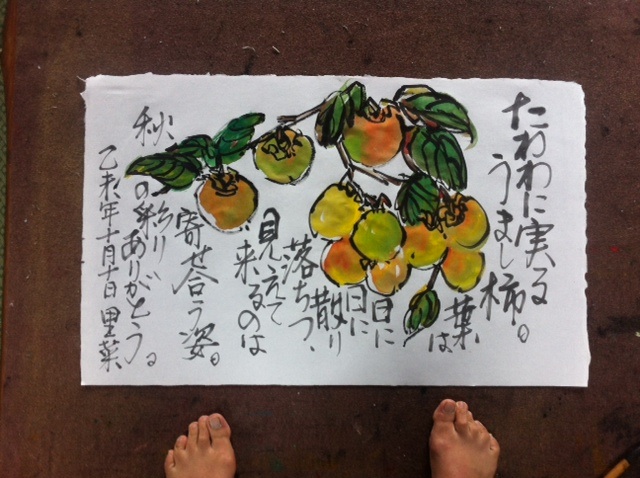 たわわに実る
うまし柿。
葉は
日に
日に
散り
落ちつ、
見立て
来るのは
寄せ合う姿。
秋の彩り
ありがとう。
乙未年十月十日里菜